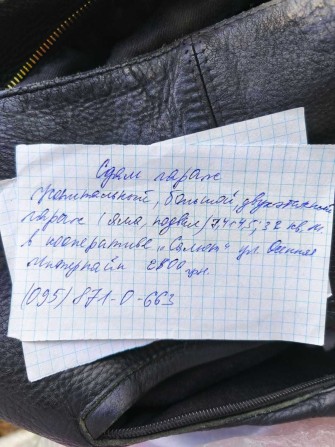 Сдам гараж
Капитальный, большой, двухэтажный
гараж (яма, подвал) 32 кв. м
в кооперативе „Салют“ ул.
2800 грн.
(095) 871-0-663